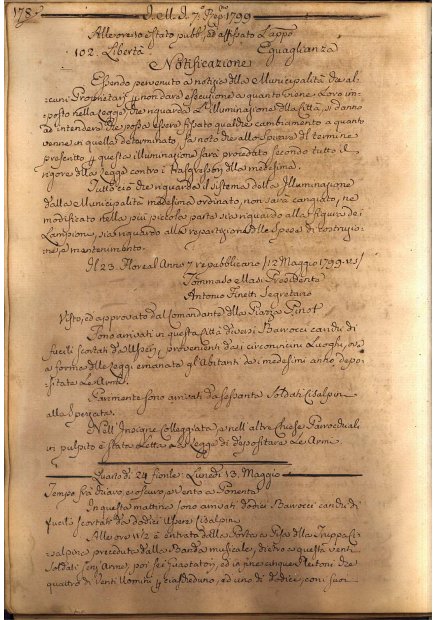 178
Libertà Eguaglianza
Notificazione
Essendo pervenuto a notizia della Municipalità da al-
cuni Proprietarj non dare esecuzione a quanto viene Loro im-
posto nella Legge, che riguarda l'Illuminazione della Città, si danno
ad intendere, che possa essere fissato qualche cambiamento a quanto
venne in quella determinato, fa noto che allo spirare del termine
prescritto questa illuminazione sarà proceduto secondo tutto il
rigore della Legge contro i Trasgressori della medesima.
Tutto ciò che riguarda il sistema della Illuminazione
dalla Municipalità medesima ordinato, non sarà cangiato, ne
modificato nella più piccola parte sia riguardo alla figura dei
Lampioni, sia riguardo alla repartizione delle spese di costruzio-
ne, e mantenimento.
Il 23 Floreal Anno 7 repubblicano /12 Maggio 1799
Tommaso Masi Presidente
Antonio Finetti Segretario
Visto, ed approvato dal Comandante della Piazza Pinot
Sono arrivati in questa Città diversi Barrocci carichi di
fucili scortati da Usseri, provenienti dai circonvicini Luoghi, ove
a forma delle Leggi emanate gl'Abitanti dei medesimi anno depo-
sitate Le Armi.
Parimente sono arrivati da sessanta Soldati Cisalpini
alla spezzata.
Nell'Insigne Colleggiata, e nell'altre Chiese Parrocchiali
in pulpito è stata letta La Legge di depositare Le Armi.
24 Lunedì 13. Maggio
Tempo frà chiaro, e oscuro, e vento a Ponente
In questa mattina sono arrivati dodici Barrocci carichi di
fucili scortati da dodici Usseri Cisalpini
Alle ore 11 1/2 è entrata dalla Porta a Pisa della Truppa Ci-
salpina preceduta dalla Banda musicale, dietro a questa venti
Soldati senz'Armi, poi sei Zappatori, ed in fine cinque Plutoni di
quattro di Venti Uomini ciascheduno, ed uno di dodici, con suoi